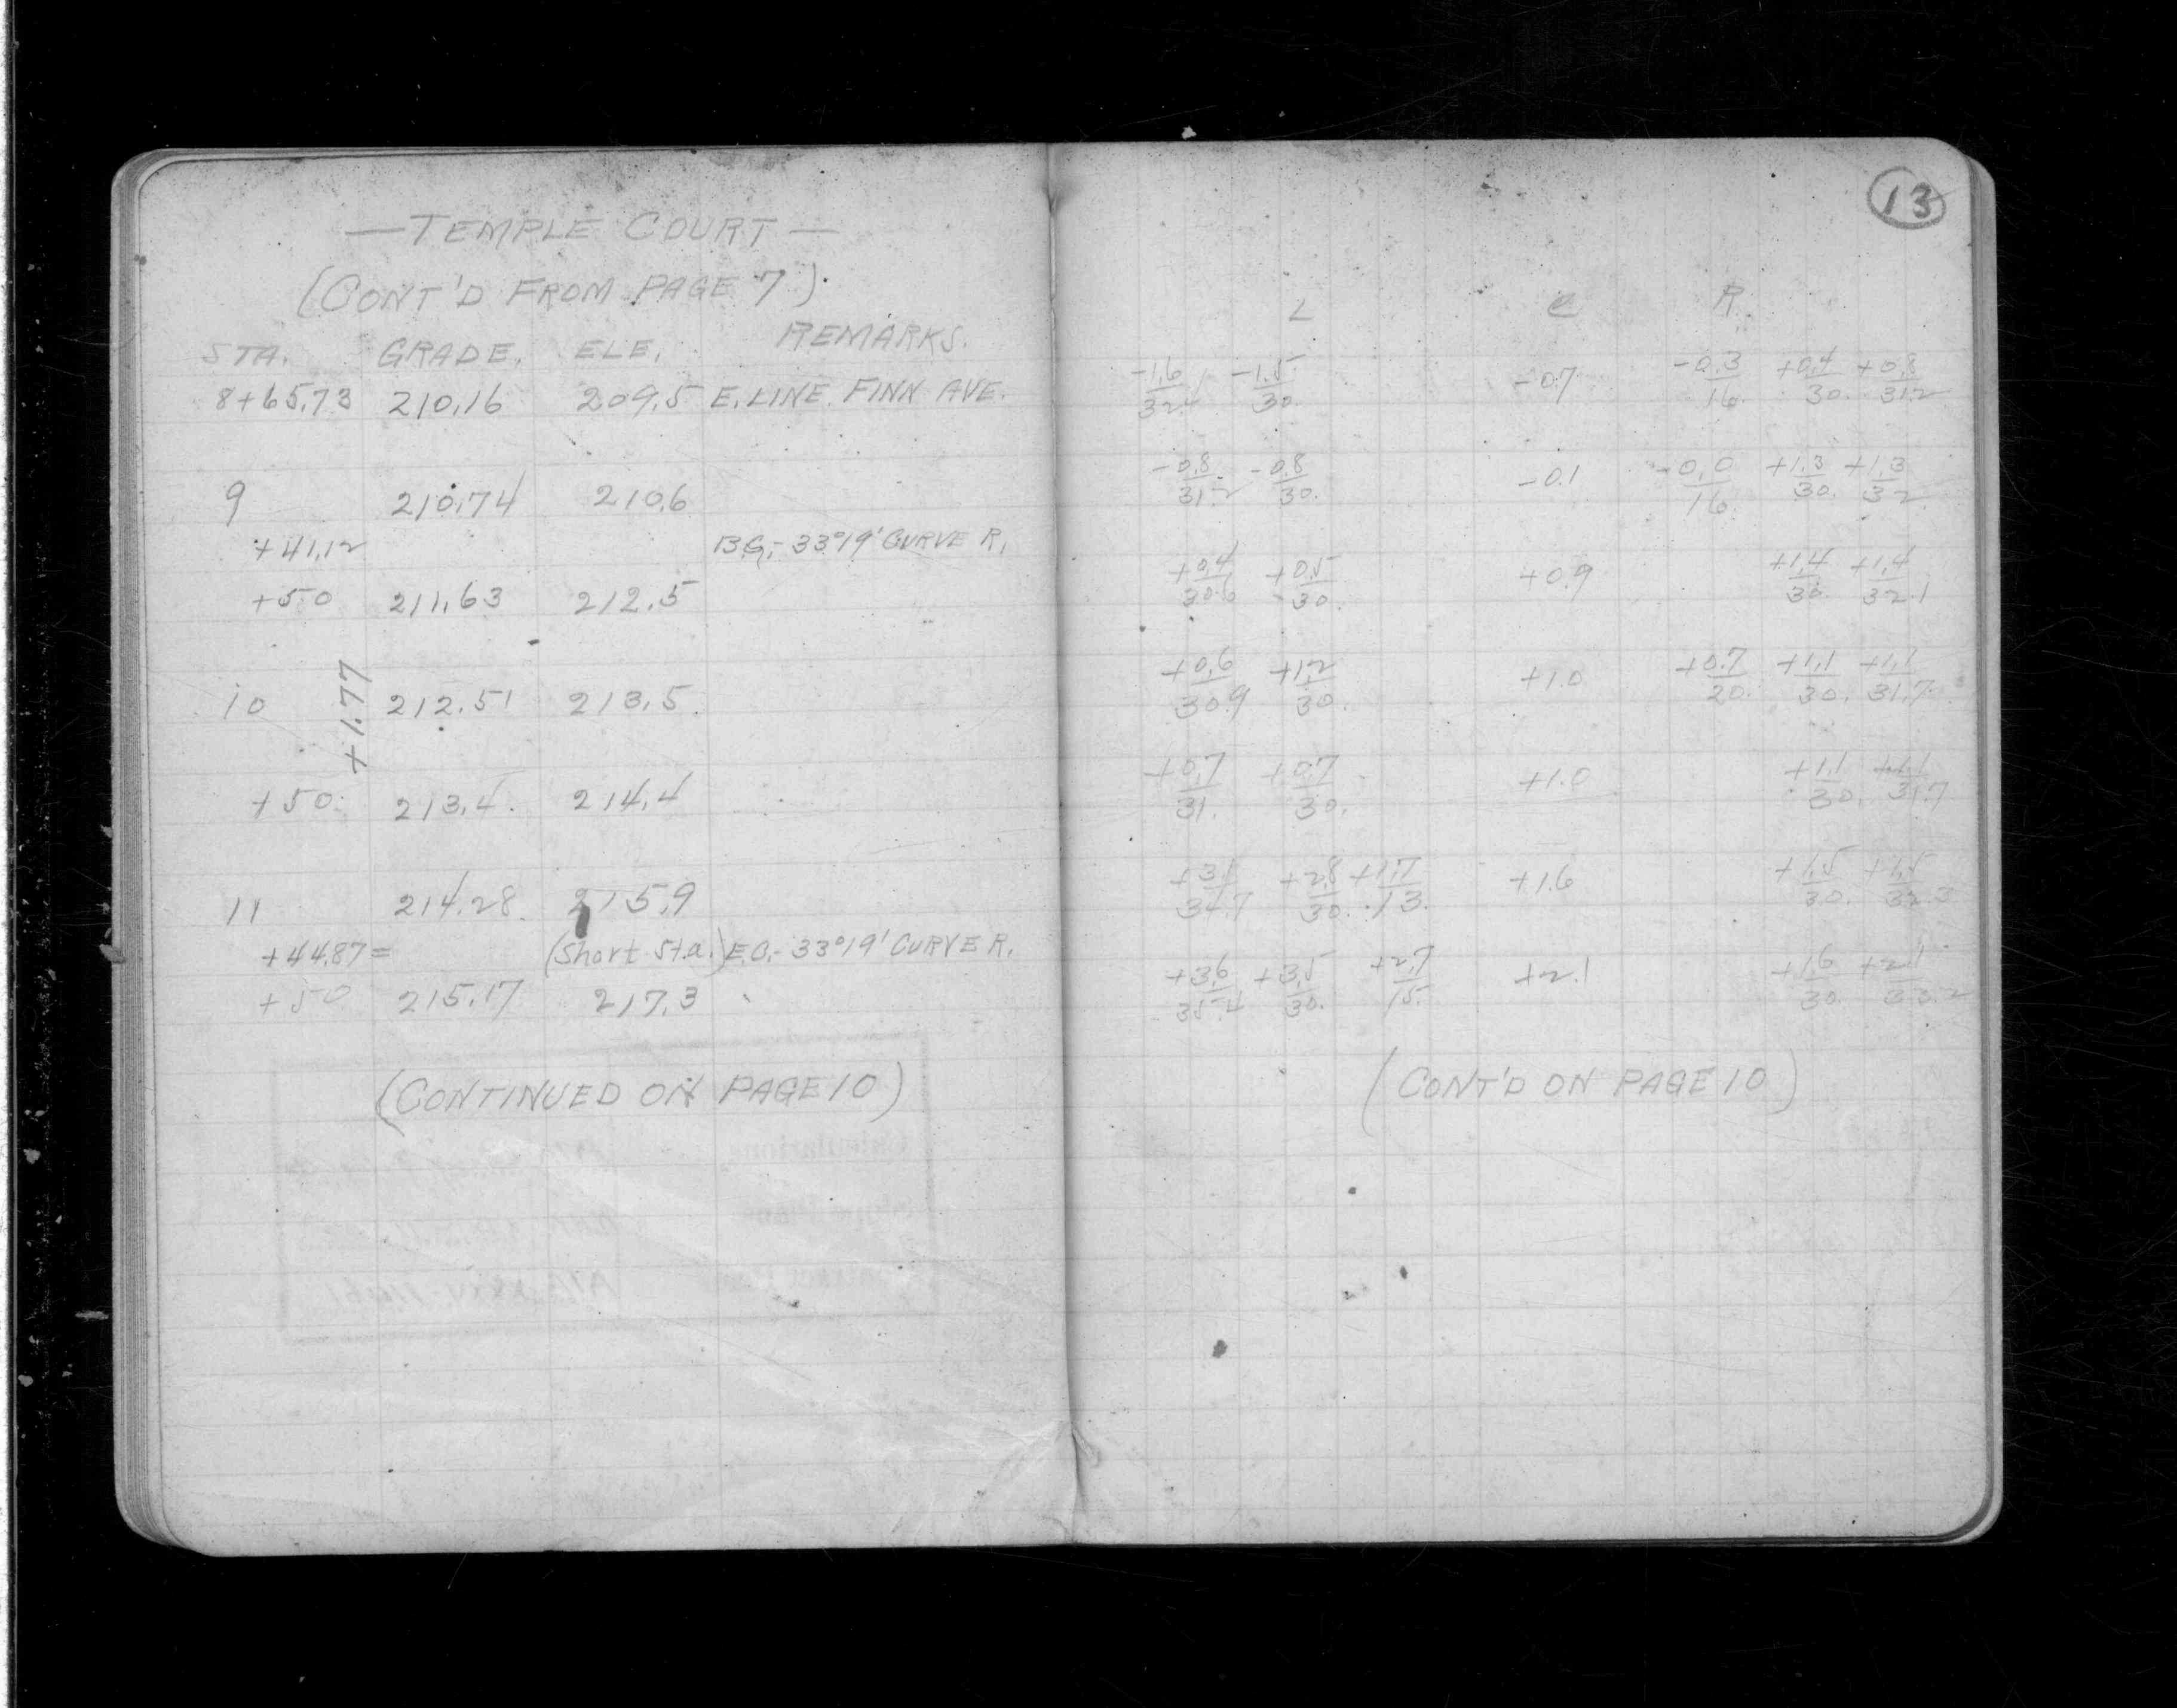 — TEMPLE COURT —
(CONT'D FROM PAGE 7)
STA. GRADE. ELE. REMARKS.
8+65.73 210.16 209.5 E. LINE FINN AVE.
9 210.74 210.6
+41.12 B.C.- 33°19' CURVE R.
+50 211.63 212.5
10 212.51 213.5
+1.77
+50 213.4 214.4
11 214.28 215.9
+44.87= (Short Sta.) E.C.- 33°19' CURVE R.
+50 215.17 217.3
(CONTINUED ON PAGE 10)
13
L R
-1.6 -1.5 -0.7 -0.3 +0.4 +0.8
30. 16. 30. 31.2
-0.8 -0.8 -0.1 -0.0 +1.3 +1.3
31.2 30. 16 30. 32
+0.4 +0.5 +0.9 +1.4 +1.4
30.6 30. 30. 32.1
+0.6 +1.2 +1.0 +0.7 +1.1 +1.1
30.9 30. 20. 30. 31.7
+0.7 +0.7 +1.0 +1.1 +1.1
31. 30. 30. 31.7
+2.8 +1.7 +1.6 +1.5 +1.5
34.7 30. 13. 30. 32.3
+3.6 +3.5 +2.7 +2.1 +1.6 +2.1
35.4 30. 15. 30. 33.2
(CONT'D ON PAGE 10)